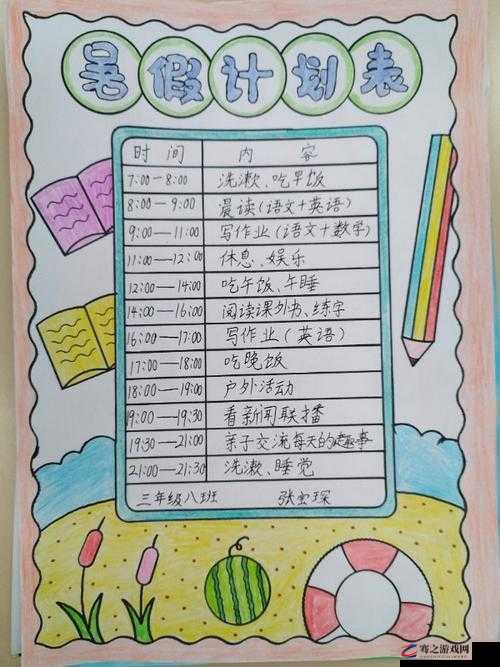 暑假计划表
时间 内容
7:00—8:00 洗漱、吃早饭
8:00—9:00 晨读(语文+英语)
9:00—11:00 写作业(语文+数学)
11:00—12:00 休息、娱乐
12:00—14:00 吃午饭、午睡
14:00—16:00 阅读课外书、练字
16:00—17:00 写作业(英语)
17:00—18:00 吃晚饭
18:00—19:00 户外活动
19:00—19:30 看新闻联播
19:30—21:00 亲子交流每天的趣事
21:00—21:30 洗漱、睡觉
三年级八班 张宝琛
骞之游戏网